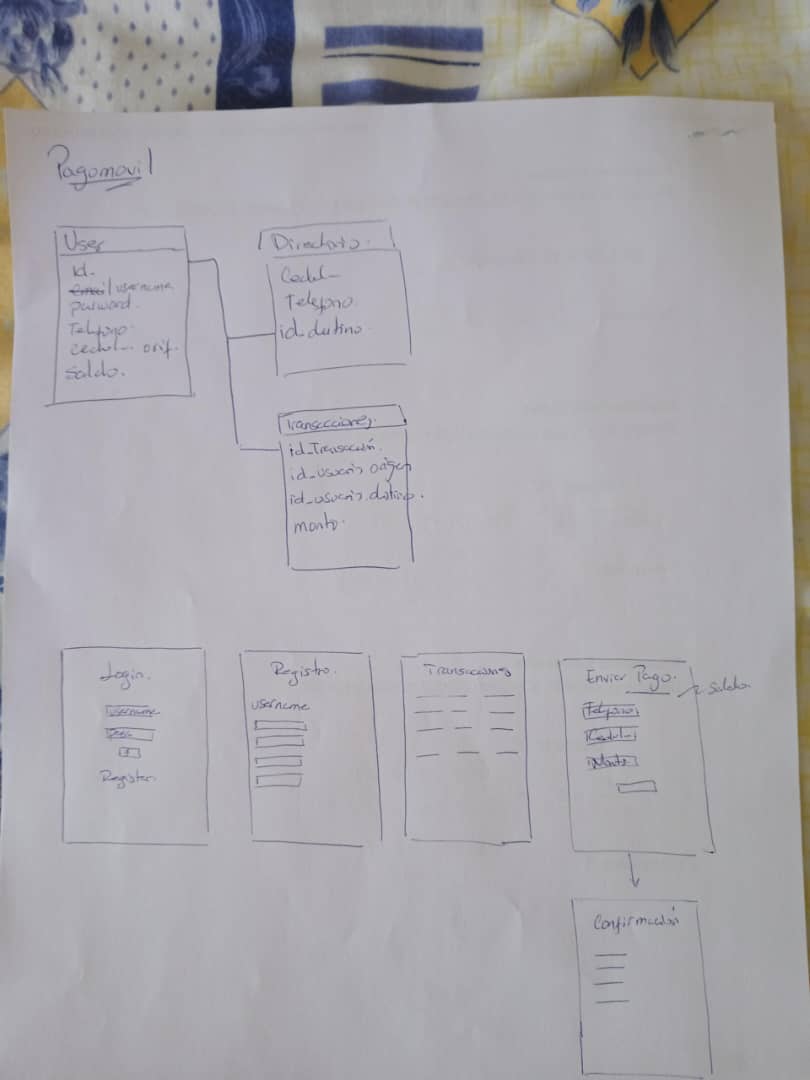 Pagomovil
User
id.
email/username
password.
Telefono.
cedula orig.
Saldo.
Directorio.
Cedula
Telefono.
id_destino
Transacciones.
id_Transacción.
id_usuario origen
id_usuario.destino.
monto.
Login.
username
Register.
Registro.
username
Transacciones
Enviar Pago.
saldo
Telefono
Cedula
Monto
Confirmación